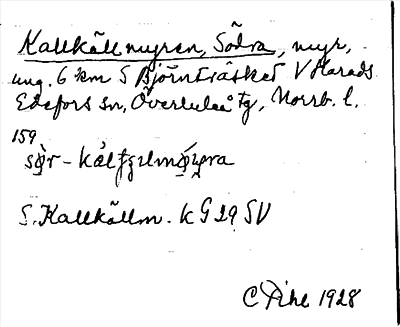 Kallkällmyren, Södra, myr,
ung. 6 km S Björnträsket V Harads
Edefors sn, Överluleå tg, Norrb. l.
159
S. Kallkällm. k G 29 SV
C Pihl 1928